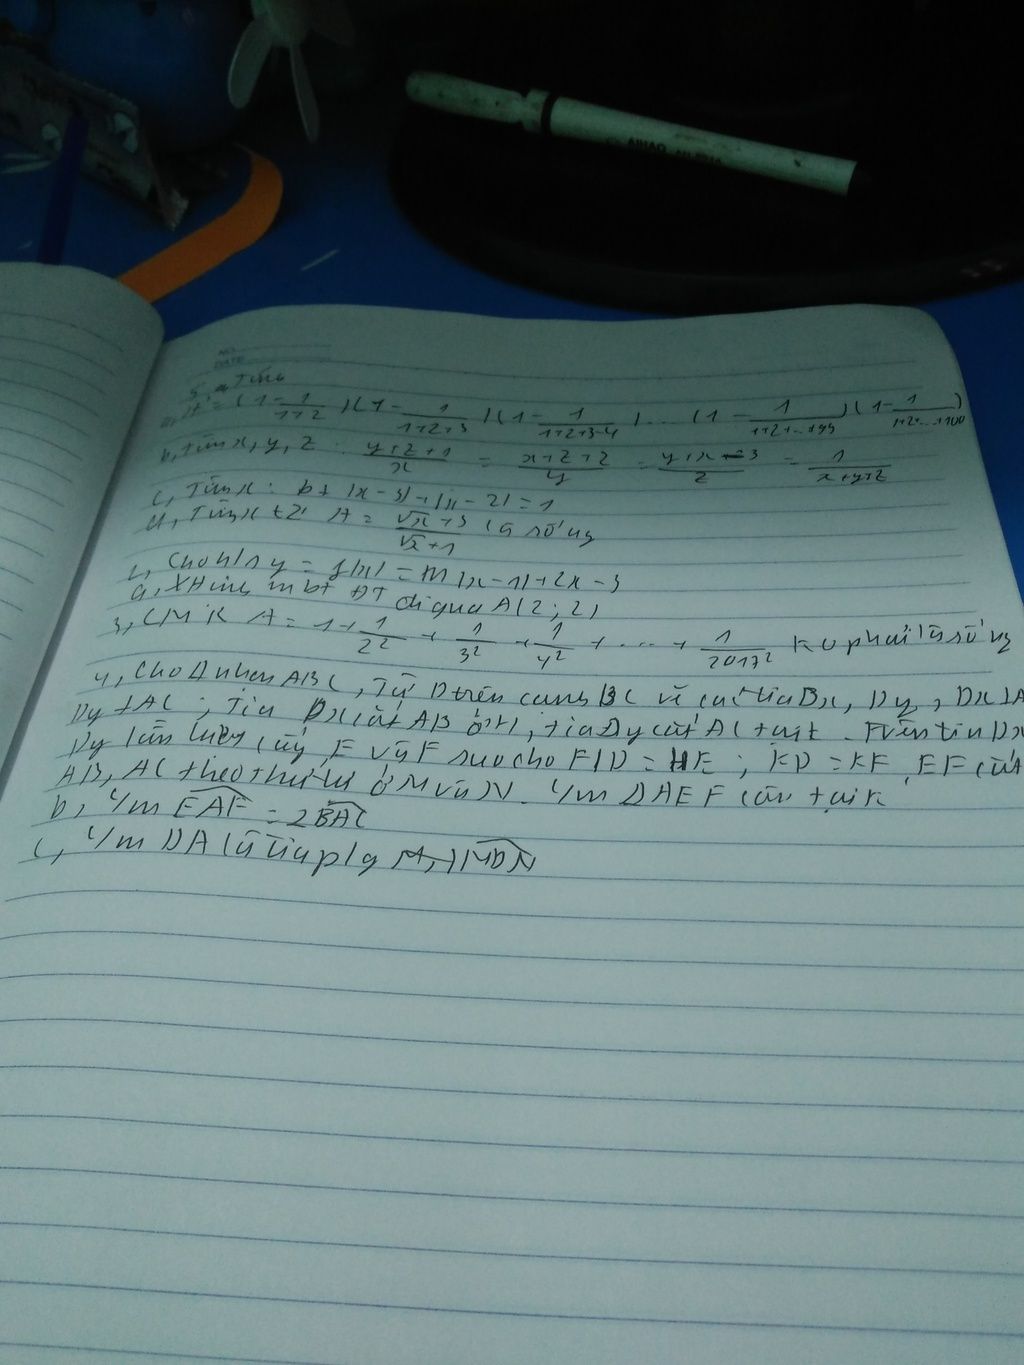 NO.
DATE
AIHAO
a, A = (1 - 1/1+2)(1 - 1/1+2+3)(1 - 1/1+2+3+4) ... (1 - 1/1+2+...+99)(1 - 1/1+2+...+100)
b, tìm x, y, z : y+z+1/x = x+z+2/y = y+x-3/z = 1/x+y+z
c, Tìm x : |x-3|+|x-2|=1
d, Tìm x ∈ Z A = √x+3/√x+1 là số ng
2, Cho h/s y = f(x) = m|x-1|+2x-3
a, XĐ m bt ĐT đi qua A(2;2)
3, CMR A = 1+1/2²+1/3²+1/4²+...+1/2017² ko phải là số ng
4, Cho Δ nhọn ABC, Từ D trên cạnh BC vẽ các tia Dx, Dy, Dx⊥A
Dy⊥AC; Tia Dx cắt AB ở H, tia Dy cắt AC tại K. Trên tia Dx
Dy lần lượt lấy E và F sao cho HD = HE ; KD = KF, EF cắt
AB, AC theo thứ tự ở M và N. C/m ΔAEF cân tại
b, C/m EAF = 2BAC
c, C/m DA là tia p/g MDN